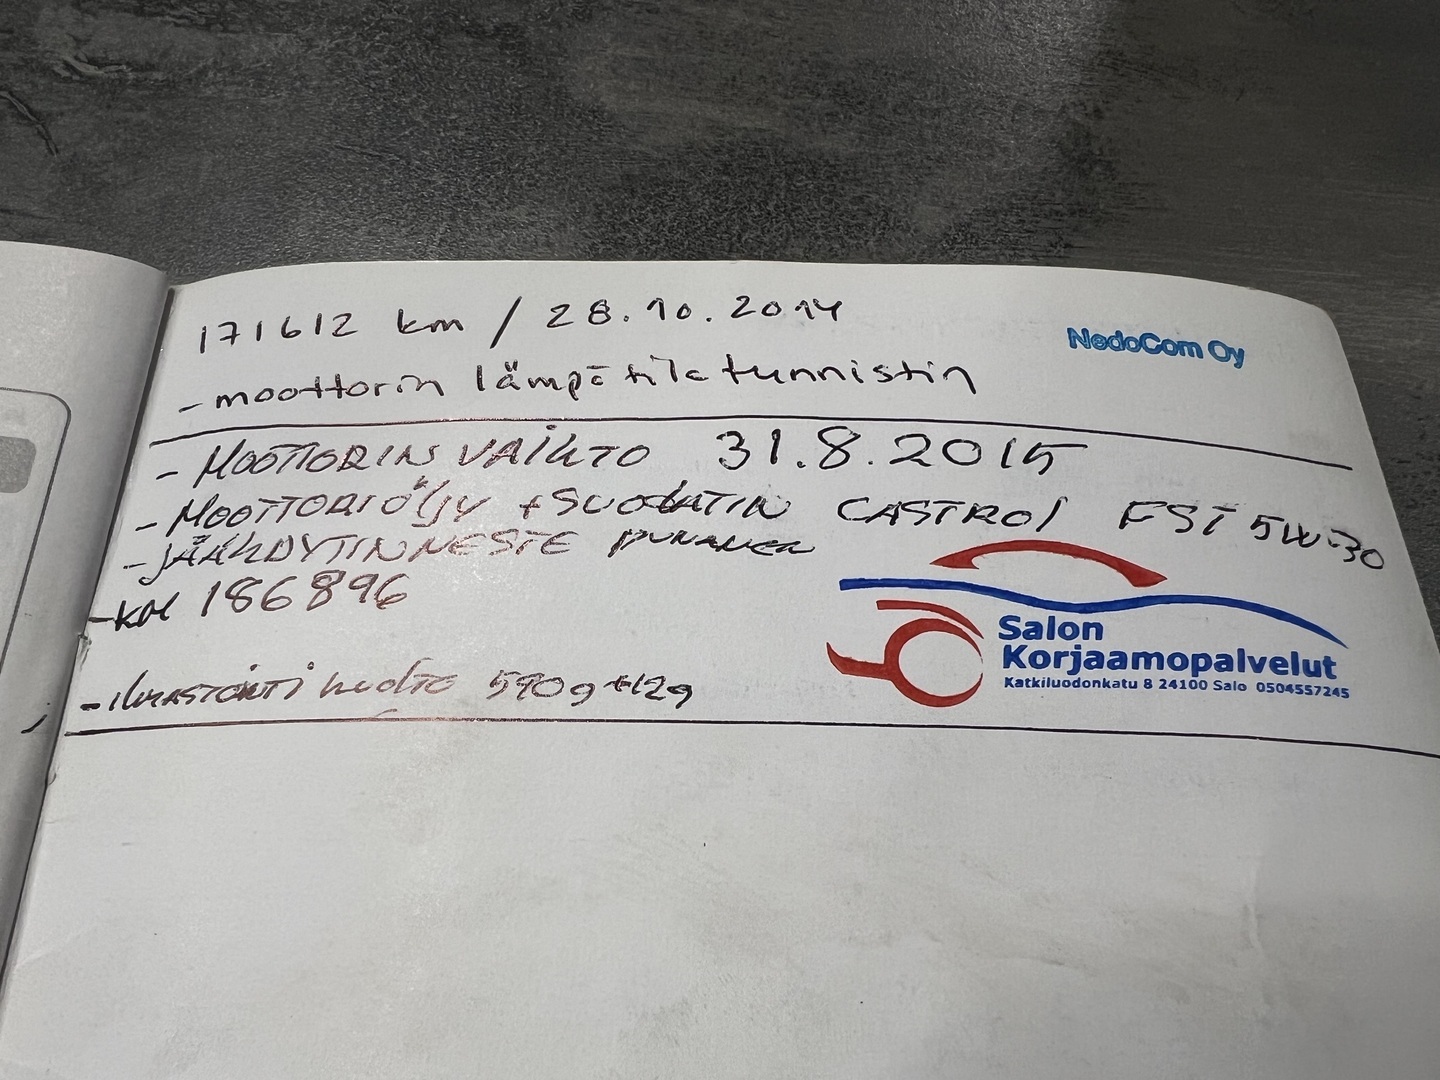 171612 km / 28.10.2014
NedoCom Oy
- moottorin lämpötilatunnistin
- MOOTTORIN VAIHTO 31.8.2015
- MOOTTORIÖLJY + SUODATIN CASTROL FST 5W-30
- JÄÄHDYTINNESTE PUNANEN
- KM 186896
Salon
Korjaamopalvelut
Katkiluodonkatu 8 24100 Salo 0504557245
- ILMASTOINTI HUOLTO 590g +12g